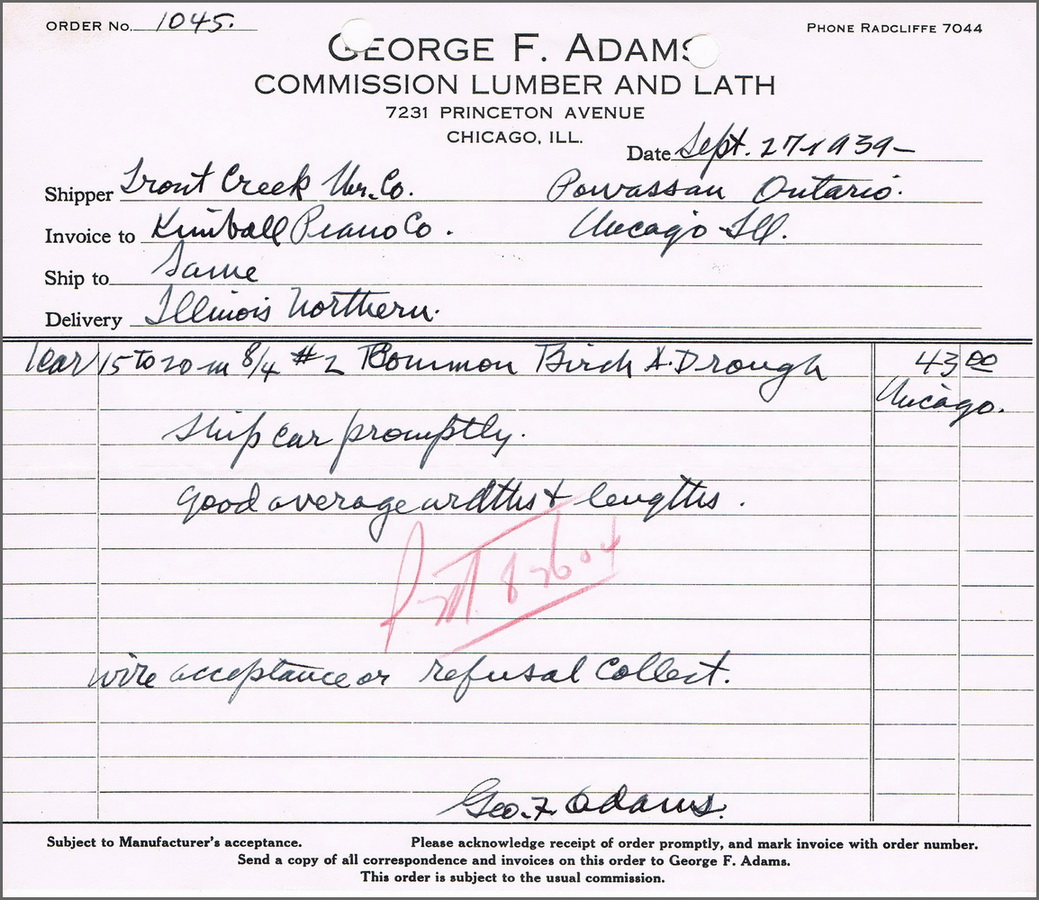 ORDER No. 1045. PHONE RADCLIFFE 7044
GEORGE F. ADAMS
COMMISSION LUMBER AND LATH
7231 PRINCETON AVENUE
CHICAGO, ILL.
Date Sept. 27-1939-
Shipper Trout Creek Co. Powassan Ontario.
Invoice to Kimball Piano Co. Chicago Ill.
Ship to Same
Delivery Illinois Northern.
1 car 15 to 20 m 8/4 #2 Common Birch 43 00
Chicago.
Ship car promptly.
Good average widths & lengths.
wire acceptance or refusal Collect.
Geo. F. Adams.
Subject to Manufacturer's acceptance. Please acknowledge receipt of order promptly, and mark invoice with order number.
Send a copy of all correspondence and invoices on this order to George F. Adams.
This order is subject to the usual commission.